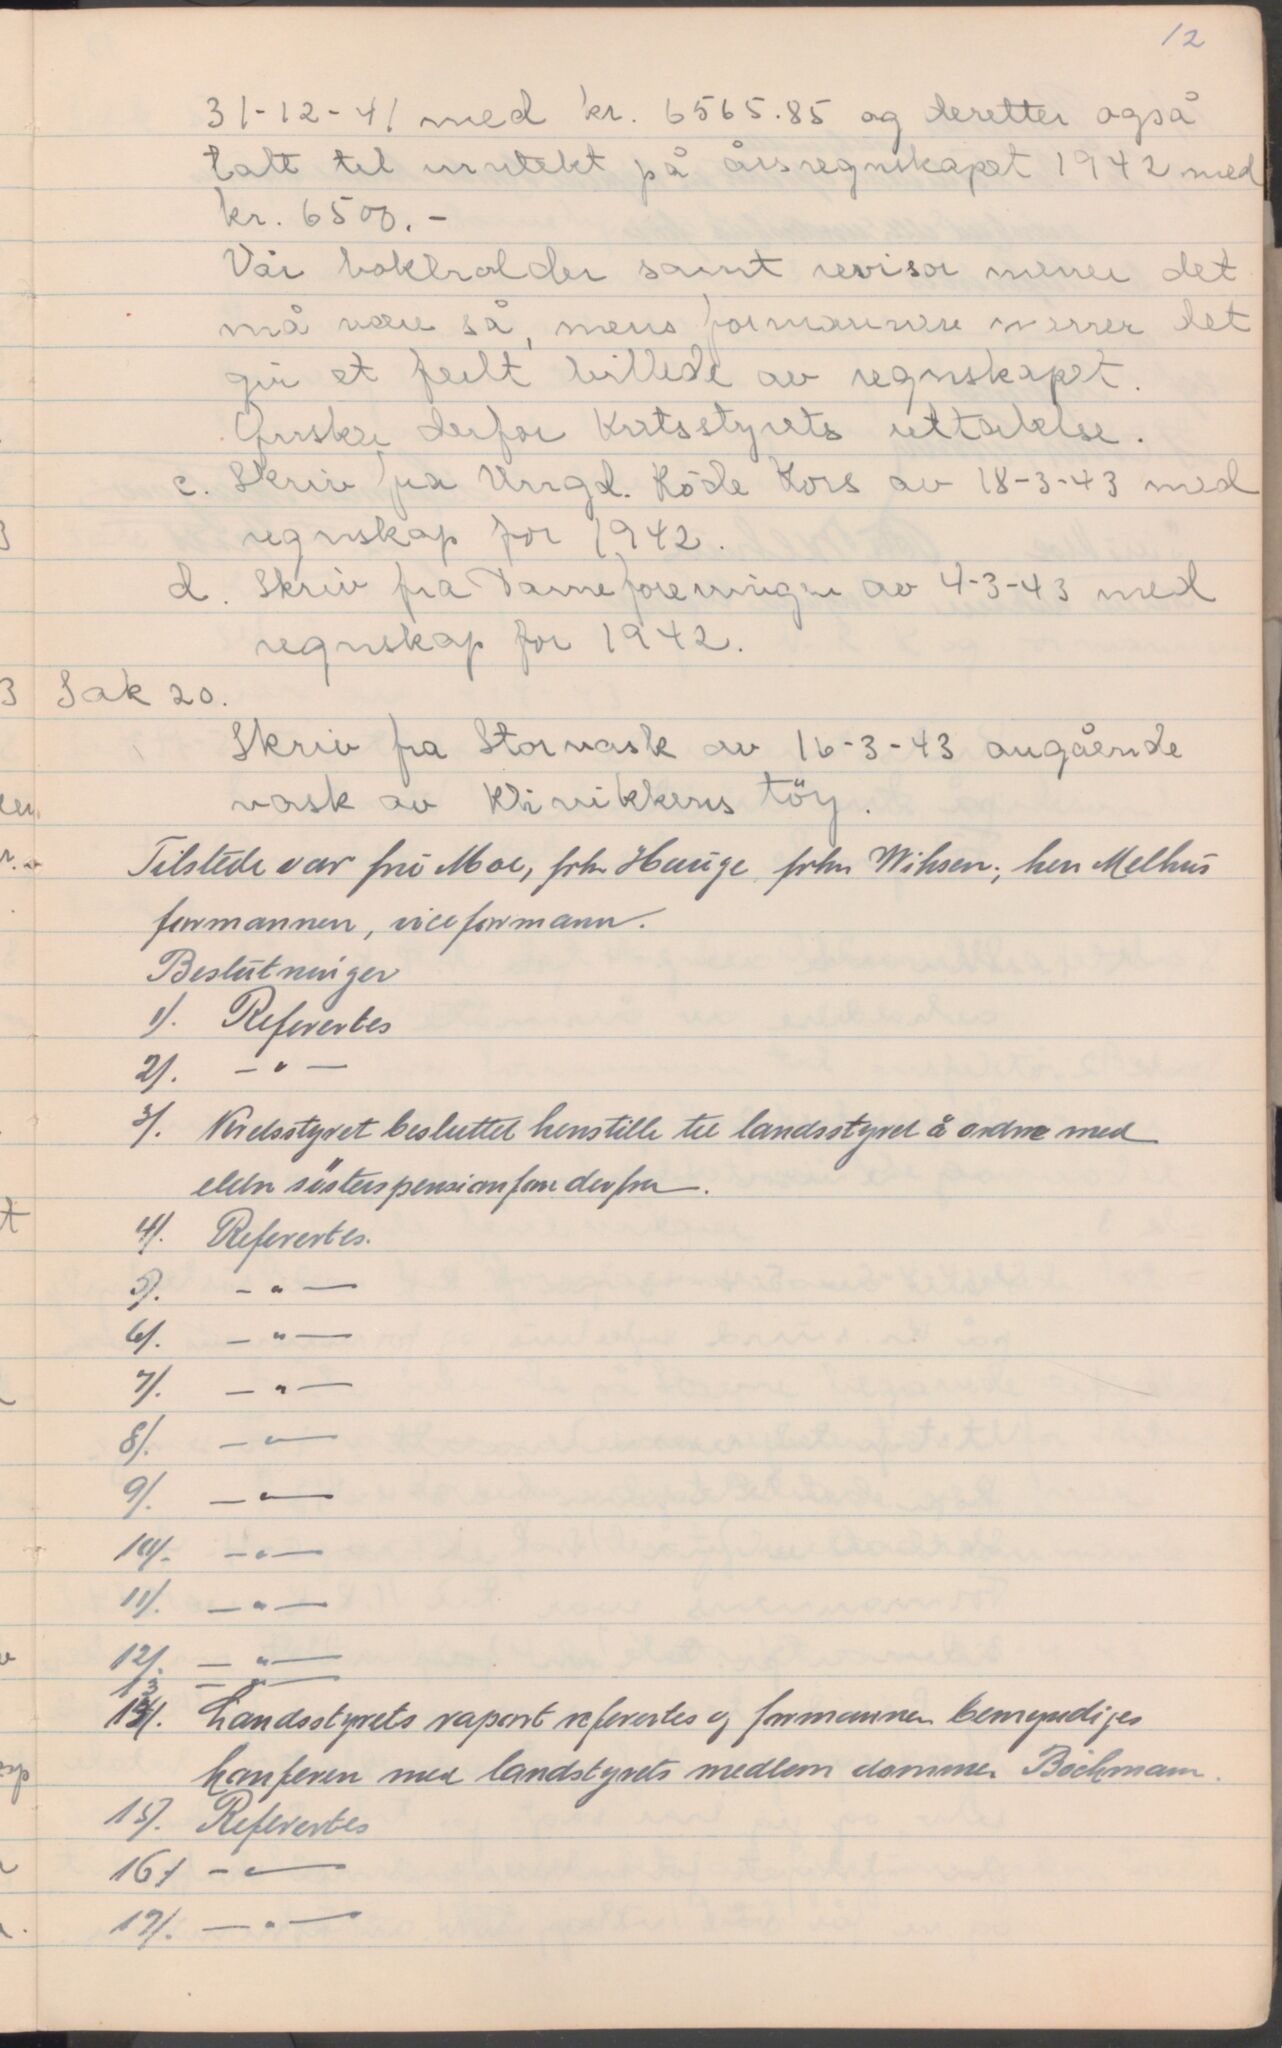 12
31-12-41 med kr. 6565.85 og deretter også
tatt til inntekt på årsregnskapet 1942 med
kr. 6500.-
Vår bokholder samt revisor mener det
må være så, mens formannen mener det
gir et feilt billede av regnskapet.
Ønsker derfor Kretsstyrets uttalelse.
c. Skriv fra Ungd. Röde Kors av 18-3-43 med
regnskap for 1942.
d. Skriv fra Dameforeningen av 4-3-43 med
regnskap for 1942.
Sak 20.
Skriv fra Storvask av 16-3-43 angående
vask av Klinikkens töy.
Tilstede var fru Moe, frkn Hauge frkn Wiksen, herr Melhus
formannen, viceformann.
Beslutninger
1/. Referertes
2/. — " —
3/. Kredsstyret besluttet henstille til landsstyret å ordne med
eldre søsterspensjon derfra.
4/. Referertes.
5/. — " —
6/. — " —
7/. — " —
8/. — " —
9/. — " —
10/. — " —
11/. — " —
12/. — " —
13 — " —
14/. Landsstyrets raport refertes og formannen bemyndiges
konferere med landstyrets medlem dommer Böckmann.
15/. Referertes
16/ — " —
17/. — " —